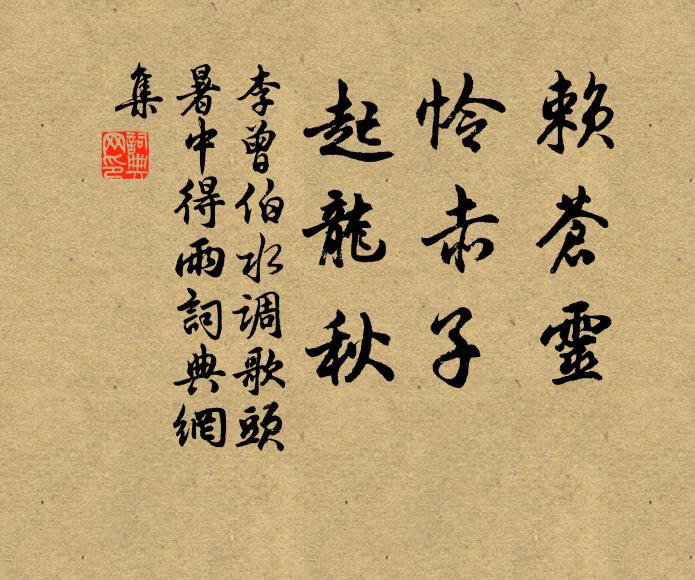 賴蒼靈
怜赤子
起龍秋
李曾伯水調歌頭
暑中得雨詞典網
集
詞典网印